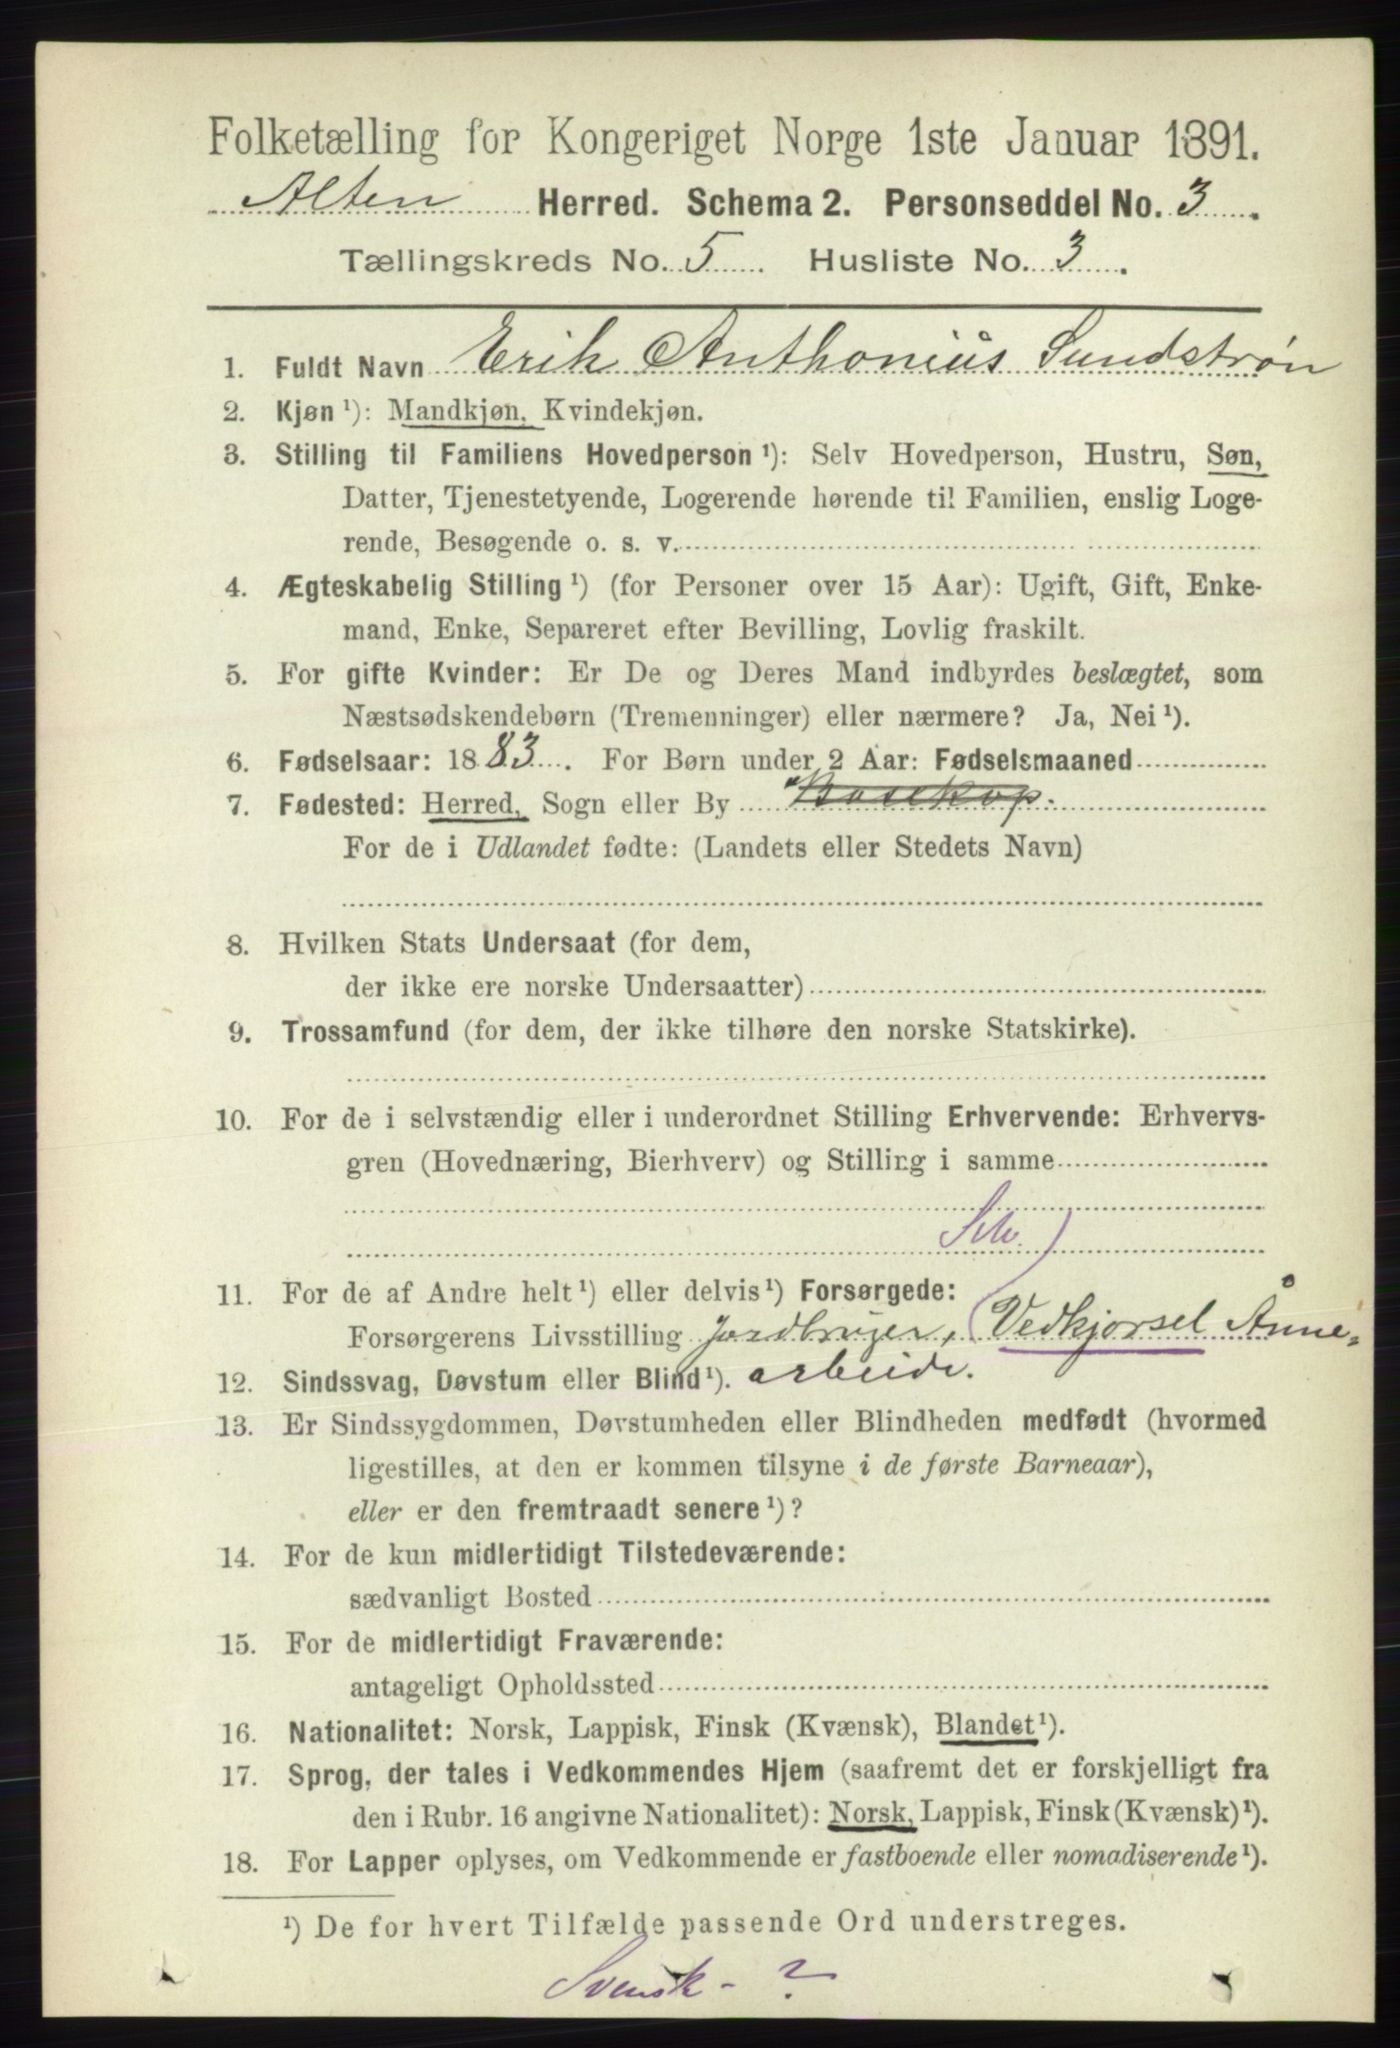 Folketælling for Kongeriget Norge 1ste Januar 1891.
Alten Herred. Schema 2. Personseddel No. 3.
Tællingskreds No. 5. Husliste No. 3.
1. Fuldt Navn Erik Anthonius Sundstrøn
2. Kjøn ¹): Mandkjøn, Kvindekjøn.
3. Stilling til Familiens Hovedperson ¹): Selv Hovedperson, Hustru, Søn,
Datter, Tjenestetyende, Logerende hørende til Familien, enslig Loge-
rende, Besøgende o. s. v.
4. Ægteskabelig Stilling ¹) (for Personer over 15 Aar): Ugift, Gift, Enke-
mand, Enke, Separeret efter Bevilling, Lovlig fraskilt.
5. For gifte Kvinder: Er De og Deres Mand indbyrdes beslægtet, som
Næstsødskendebørn (Tremenninger) eller nærmere? Ja, Nei ¹).
6. Fødselsaar: 1883. For Børn under 2 Aar: Fødselsmaaned
7. Fødested: Herred, Sogn eller By Bosekop.
For de i Udlandet fødte: (Landets eller Stedets Navn)
8. Hvilken Stats Undersaat (for dem,
der ikke ere norske Undersaatter)
9. Trossamfund (for dem, der ikke tilhøre den norske Statskirke).
10. For de i selvstændig eller i underordnet Stilling Erhvervende: Erhvervs-
gren (Hovednæring, Bierhverv) og Stilling i samme
11. For de af Andre helt ¹) eller delvis ¹) Forsørgede:
Forsørgerens Livsstilling Jordbruger, (Vedkjørsel Ånne-
12. Sindssvag, Døvstum eller Blind ¹). arbeide.
13. Er Sindssygdommen, Døvstumheden eller Blindheden medfødt (hvormed
ligestilles, at den er kommen tilsyne i de første Barneaar),
eller er den fremtraadt senere ¹)?
14. For de kun midlertidigt Tilstedeværende:
sædvanligt Bosted
15. For de midlertidigt Fraværende:
antageligt Opholdssted
16. Nationalitet: Norsk, Lappisk, Finsk (Kvænsk), Blandet ¹).
17. Sprog, der tales i Vedkommendes Hjem (saafremt det er forskjelligt fra
den i Rubr. 16 angivne Nationalitet): Norsk, Lappisk, Finsk (Kvænsk) ¹).
18. For Lapper oplyses, om Vedkommende er fastboende eller nomadiserende ¹).
¹) De for hvert Tilfælde passende Ord understreges.
Svensk - ?